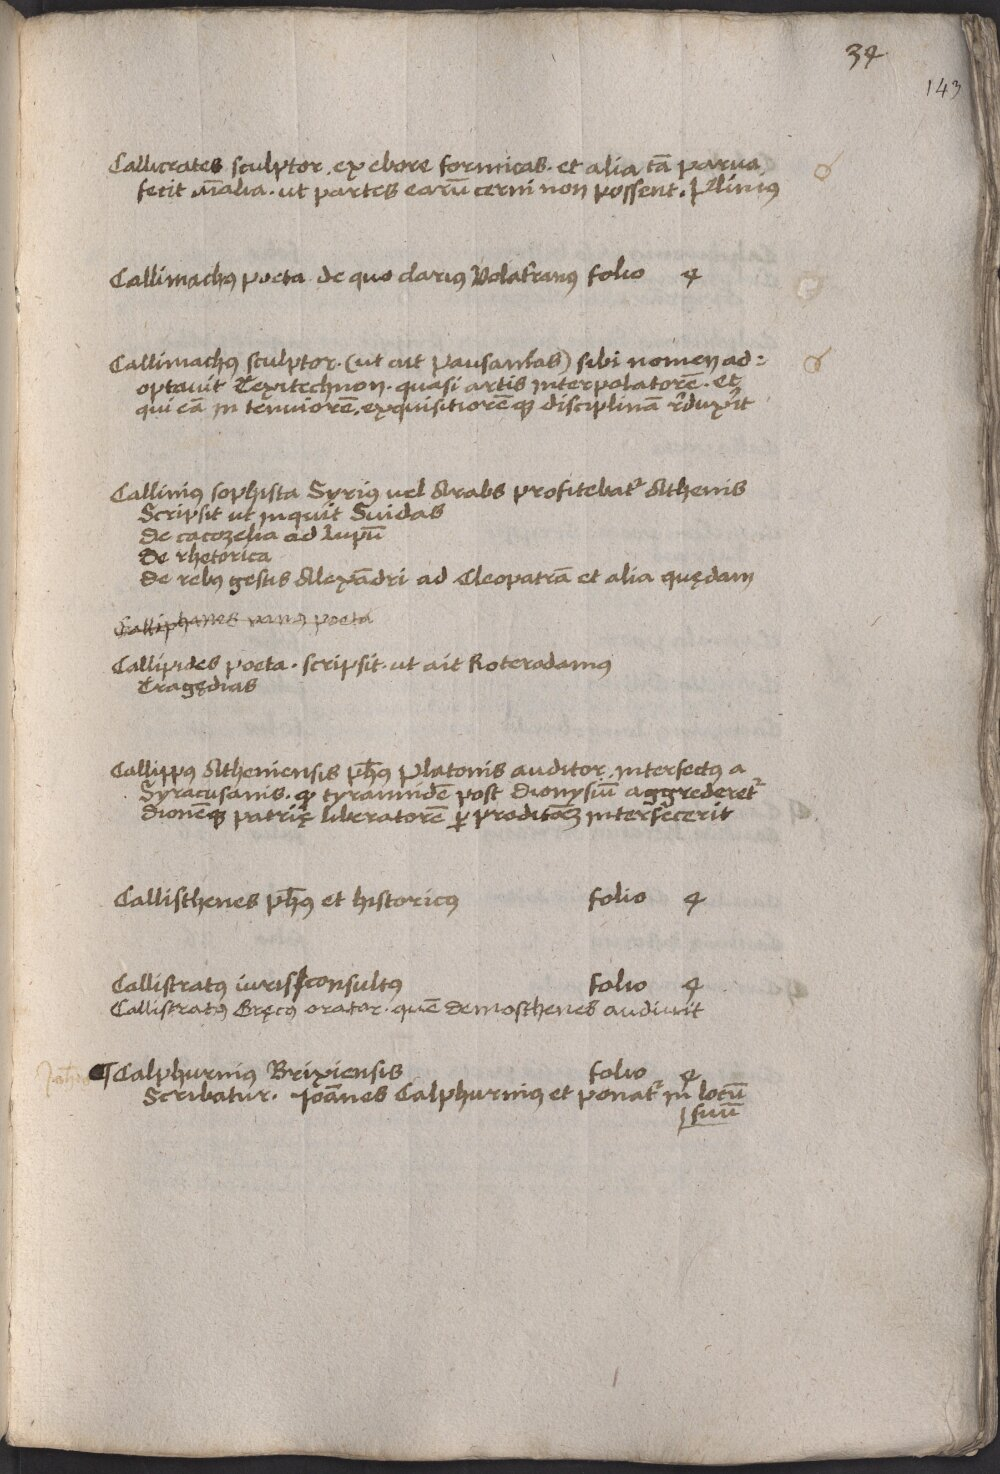 34
143
Callicrates sculptor. ex ebore formicas. et alia tā parua
fecit aīalia. ut partes earū cerni non possent. Plinius
Callimachus poeta de quo clarius Volaterranus folio 4
Callimachus sculptor. (ut ait Pausanias) sibi nomen ad=
optauit Texitechnon. quasi artis interpolatorē. et
qui eā in tenuiorē, exquisitiorēq disciplinā rēduxīt
Callinius sophista Syrius uel Arabs profitebat᷑ Athenis
Scripsit ut inquit Suidas
De cacozelia ad Lupū
De rhetorica
De rebus gestis Alexādri ad Cleopatrā et alia quędam
Calliphanes uanus poeta
Callipides poeta. scripsit. ut ait Roterodamus
Tragędias
Callippus Atheniensis ph̄us Platonis auditor, interfectus a
Syracusanis. q tyrannidē post Dionysiū aggrederet᷑
Dionēq patrię liberatorē p proditorē interfecerit
Callisthenes ph̄us et historicus folio 4
Callistratus iurisconsultus folio 4
Callistratus Gręcus orator. quē Demosthenes audiuit
¶ Calphurnius Brixiensis folio 4
Scribatur. Joānes Calphurnius et ponat᷑ in locū
suū